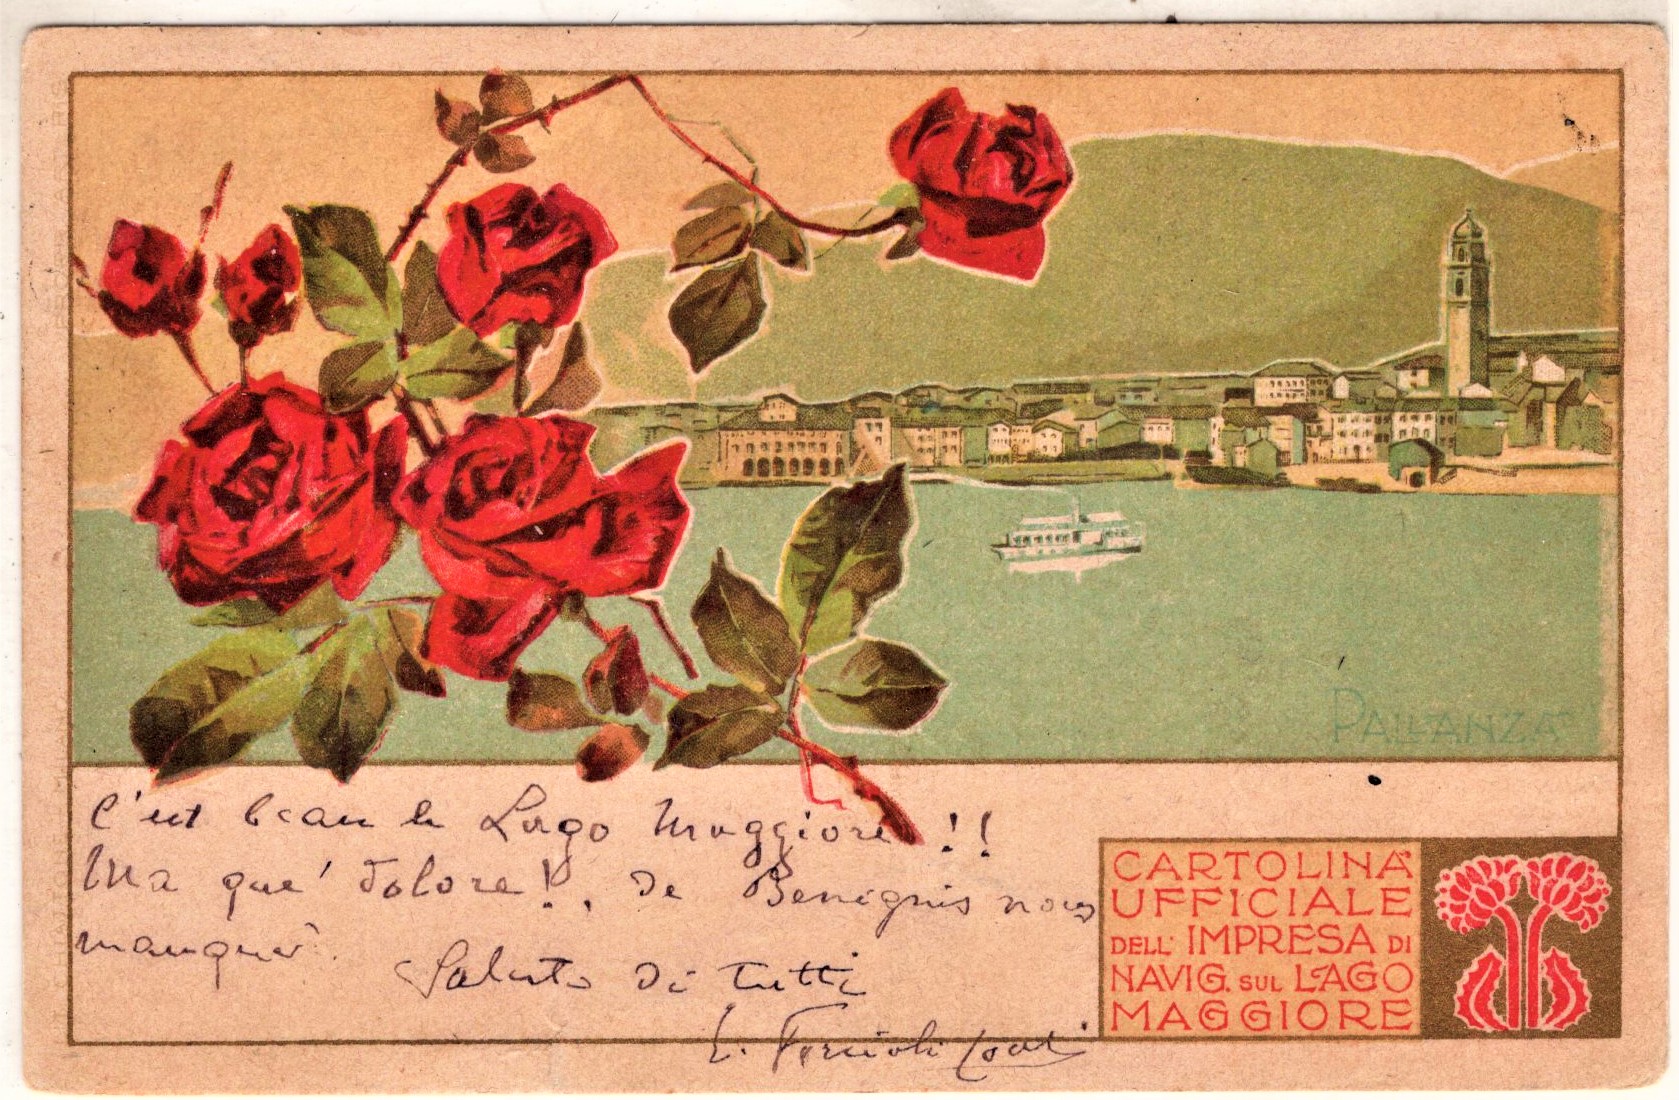 PALLANZA
C'est beau le Lago Maggiore !!
Ma que' dolore!, De Benignis nous
manque.
Saluto di tutti
CARTOLINA
UFFICIALE
DELL' IMPRESA DI
NAVIG. SUL LAGO
MAGGIORE